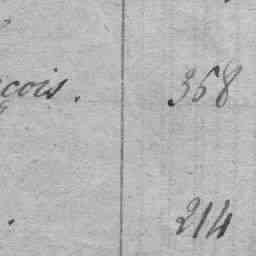 çois. 358
. 214